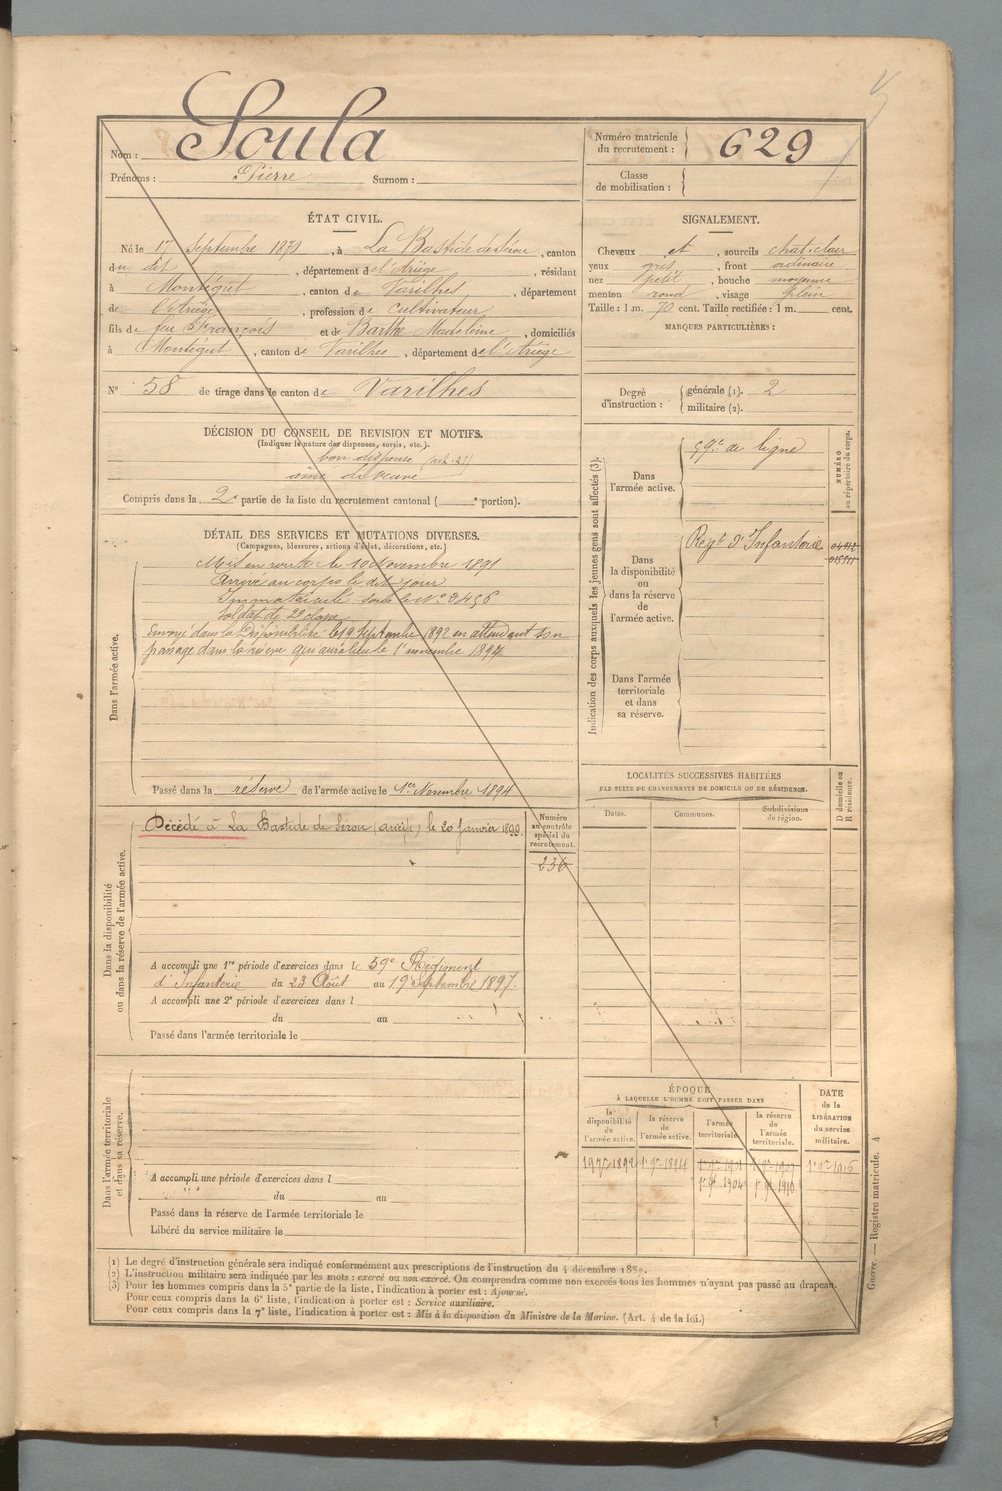 Nom : Soula
Prénoms : Pierre Surnom :
Numéro matricule du recrutement : 629
Classe de mobilisation :
ÉTAT CIVIL.
Né le 17 Septembre 18 , à La Bastide de Sérou , canton
du dit , département de l'Ariège , résidant
à Montégut , canton de Varilhes , département
de l'Ariège , profession de cultivateur
fils de feu François et de Barthe Madeleine , domiciliés
à Montégut , canton de Varilhes , département de l'Ariège
N° 58 de tirage dans le canton de Varilhes
SIGNALEMENT.
Cheveux et , sourcils chat. clair
yeux gris , front ordinaire
nez petit , bouche moyenne
menton rond , visage plein
Taille : 1 m. 70 cent. Taille rectifiée : 1 m. cent.
MARQUES PARTICULIÈRES :
Degré d'instruction : générale (1). 2
militaire (2).
DÉCISION DU CONSEIL DE REVISION ET MOTIFS.
(Indiquer la nature des dispenses, sursis, etc.).
bon dispensé (art. 21)
aîné de veuve
Compris dans la 2e partie de la liste du recrutement cantonal ( e portion).
DÉTAIL DES SERVICES ET MUTATIONS DIVERSES.
(Campagnes, blessures, actions d'éclat, décorations, etc.)
Dans l'armée active.
Mis en route le 10 Novembre 1891
Arrivé au corps le dit jour
Immatriculé sous le N° 3456
Soldat de 2e classe
Envoyé dans la Disponibilité le 19 Septembre 1892 en attendant son
passage dans la réserve qui aura lieu le 1er novembre 1894
Passé dans la réserve de l'armée active le 1er Novembre 1894
Indication des corps auxquels les jeunes gens sont affectés (3).
NUMÉRO au répertoire du corps.
Dans l'armée active. 59e de ligne
Dans la disponibilité ou dans la réserve de l'armée active. Régt d'Infanterie
Dans l'armée territoriale et dans sa réserve.
LOCALITÉS SUCCESSIVES HABITÉES
PAR SUITE DE CHANGEMENTS DE DOMICILE OU DE RÉSIDENCE.
Dates. Communes. Subdivisions de région. D domicile ou R résidence.
Dans la disponibilité ou dans la réserve de l'armée active.
Décédé à La Bastide de Sérou (Ariège) le 20 Janvier 1899.
Numéro au contrôle spécial du recrutement.
236
A accompli une 1re période d'exercices dans le 59e Régiment
d'Infanterie du 23 Août au 19 Septembre 1897.
A accompli une 2e période d'exercices dans l
du au
Passé dans l'armée territoriale le
Dans l'armée territoriale et dans sa réserve.
A accompli une période d'exercices dans l
du au
Passé dans la réserve de l'armée territoriale le
Libéré du service militaire le
ÉPOQUE
À LAQUELLE L'HOMME DOIT PASSER DANS
la disponibilité de l'armée active. la réserve de l'armée active. l'armée territoriale. la réserve de l'armée territoriale.
DATE de la LIBÉRATION du service militaire.
19 7bre 1892 1er 9bre 1894 1er 9bre 1901 1er 9bre 1907 1er 9bre 1916
1er 9bre 1904 1er 9bre 1910
(1) Le degré d'instruction générale sera indiqué conformément aux prescriptions de l'instruction du 4 décembre 1889.
(2) L'instruction militaire sera indiquée par les mots : exercé ou non exercé. On comprendra comme non exercés tous les hommes n'ayant pas passé au drapeau.
(3) Pour les hommes compris dans la 5e partie de la liste, l'indication à porter est : Ajourné.
Pour ceux compris dans la 6e liste, l'indication à porter est : Service auxiliaire.
Pour ceux compris dans la 7e liste, l'indication à porter est : Mis à la disposition du Ministre de la Marine. (Art. 4 de la loi.)
Guerre. — Registre matricule. 4